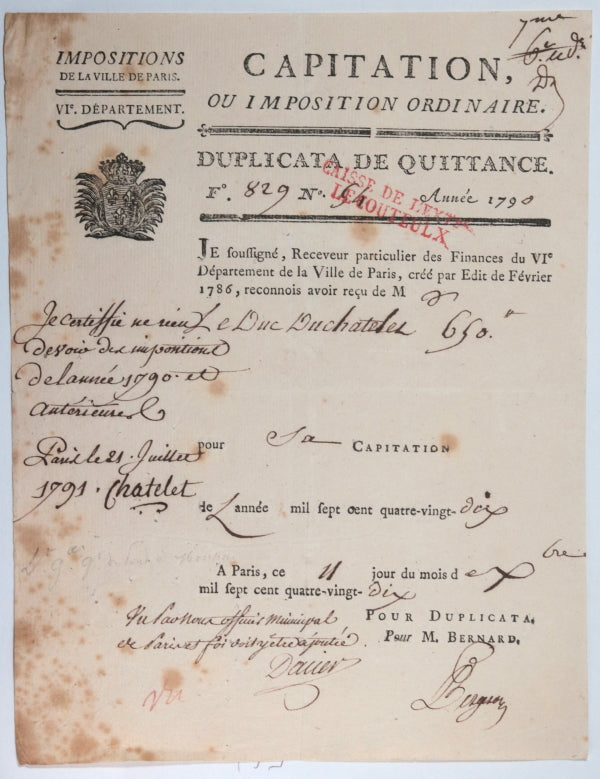 7me
6e ud.
IMPOSITIONS
DE LA VILLE DE PARIS.
VIe. DÉPARTEMENT.
CAPITATION,
OU IMPOSITION ORDINAIRE.
DUPLICATA DE QUITTANCE.
Fo. 829 No. 61 Année 1790
CAISSE DE L'EXTRE
LECOUTEULX
JE soussigné, Receveur particulier des Finances du VIe
Département de la Ville de Paris, créé par Edit de Février
1786, reconnois avoir reçu de M
Le Duc Duchatelet 650.
Je certiffie ne rien
devoir des impositions
de l'année 1790. et
antérieures
Paris le 21. Juillet
1791. Chatelet
pour Sa CAPITATION
de L'année mil sept cent quatre-vingt-dix
A Paris, ce 11 jour du mois de Xbre
mil sept cent quatre-vingt-dix
Vu par nous officier Municipal
de Paris et foi doit y être ajoutée.
POUR DUPLICATA.
Pour M. BERNARD.
vu